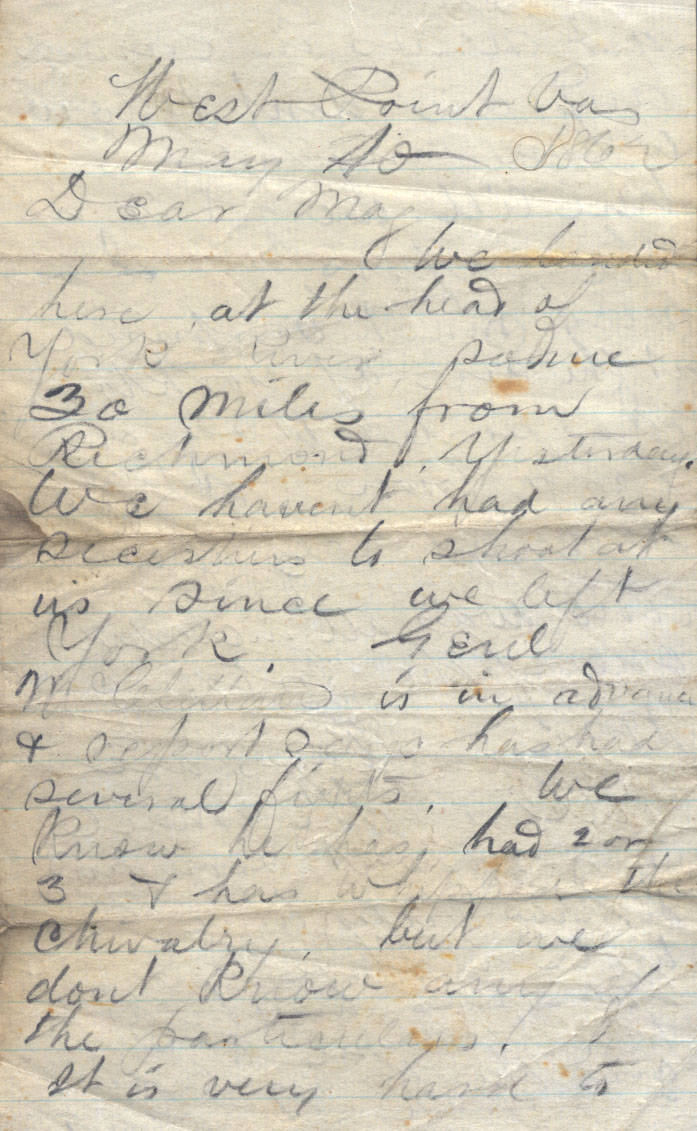 West Point Va
May 10 1862
Dear Mag
We landed
here, at the head of
York River, some
30 miles from
Richmond, Yesterday.
We havent had any
seceshers to shoot at
us since we left
York. Genl
McClellan is in advance
& report says has had
several fights. We
Know he has had 2 or
3 & has whipped the
chivalry, but we
dont Know any of
the particulars.
It is very hard to